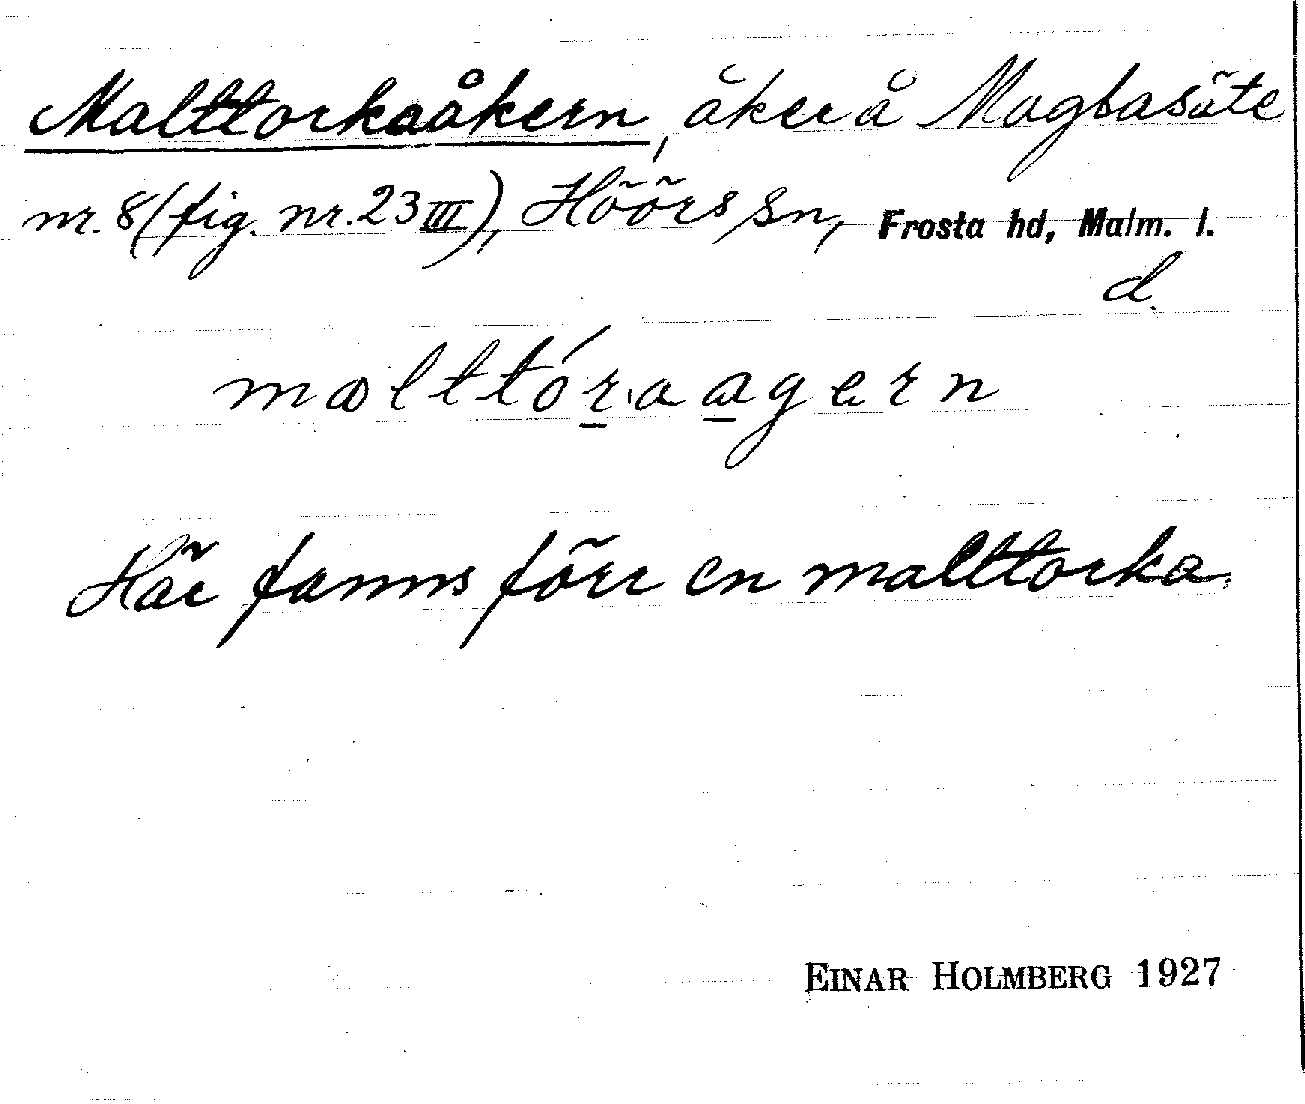 Malttorkaåkern, åker å Magbasäte
nr. 8 (fig. nr. 23 III), Höörs sn, Frosta hd, Malm. l.
d.
malttóra agern
Här fanns förr en malttorka.
EINAR HOLMBERG 1927